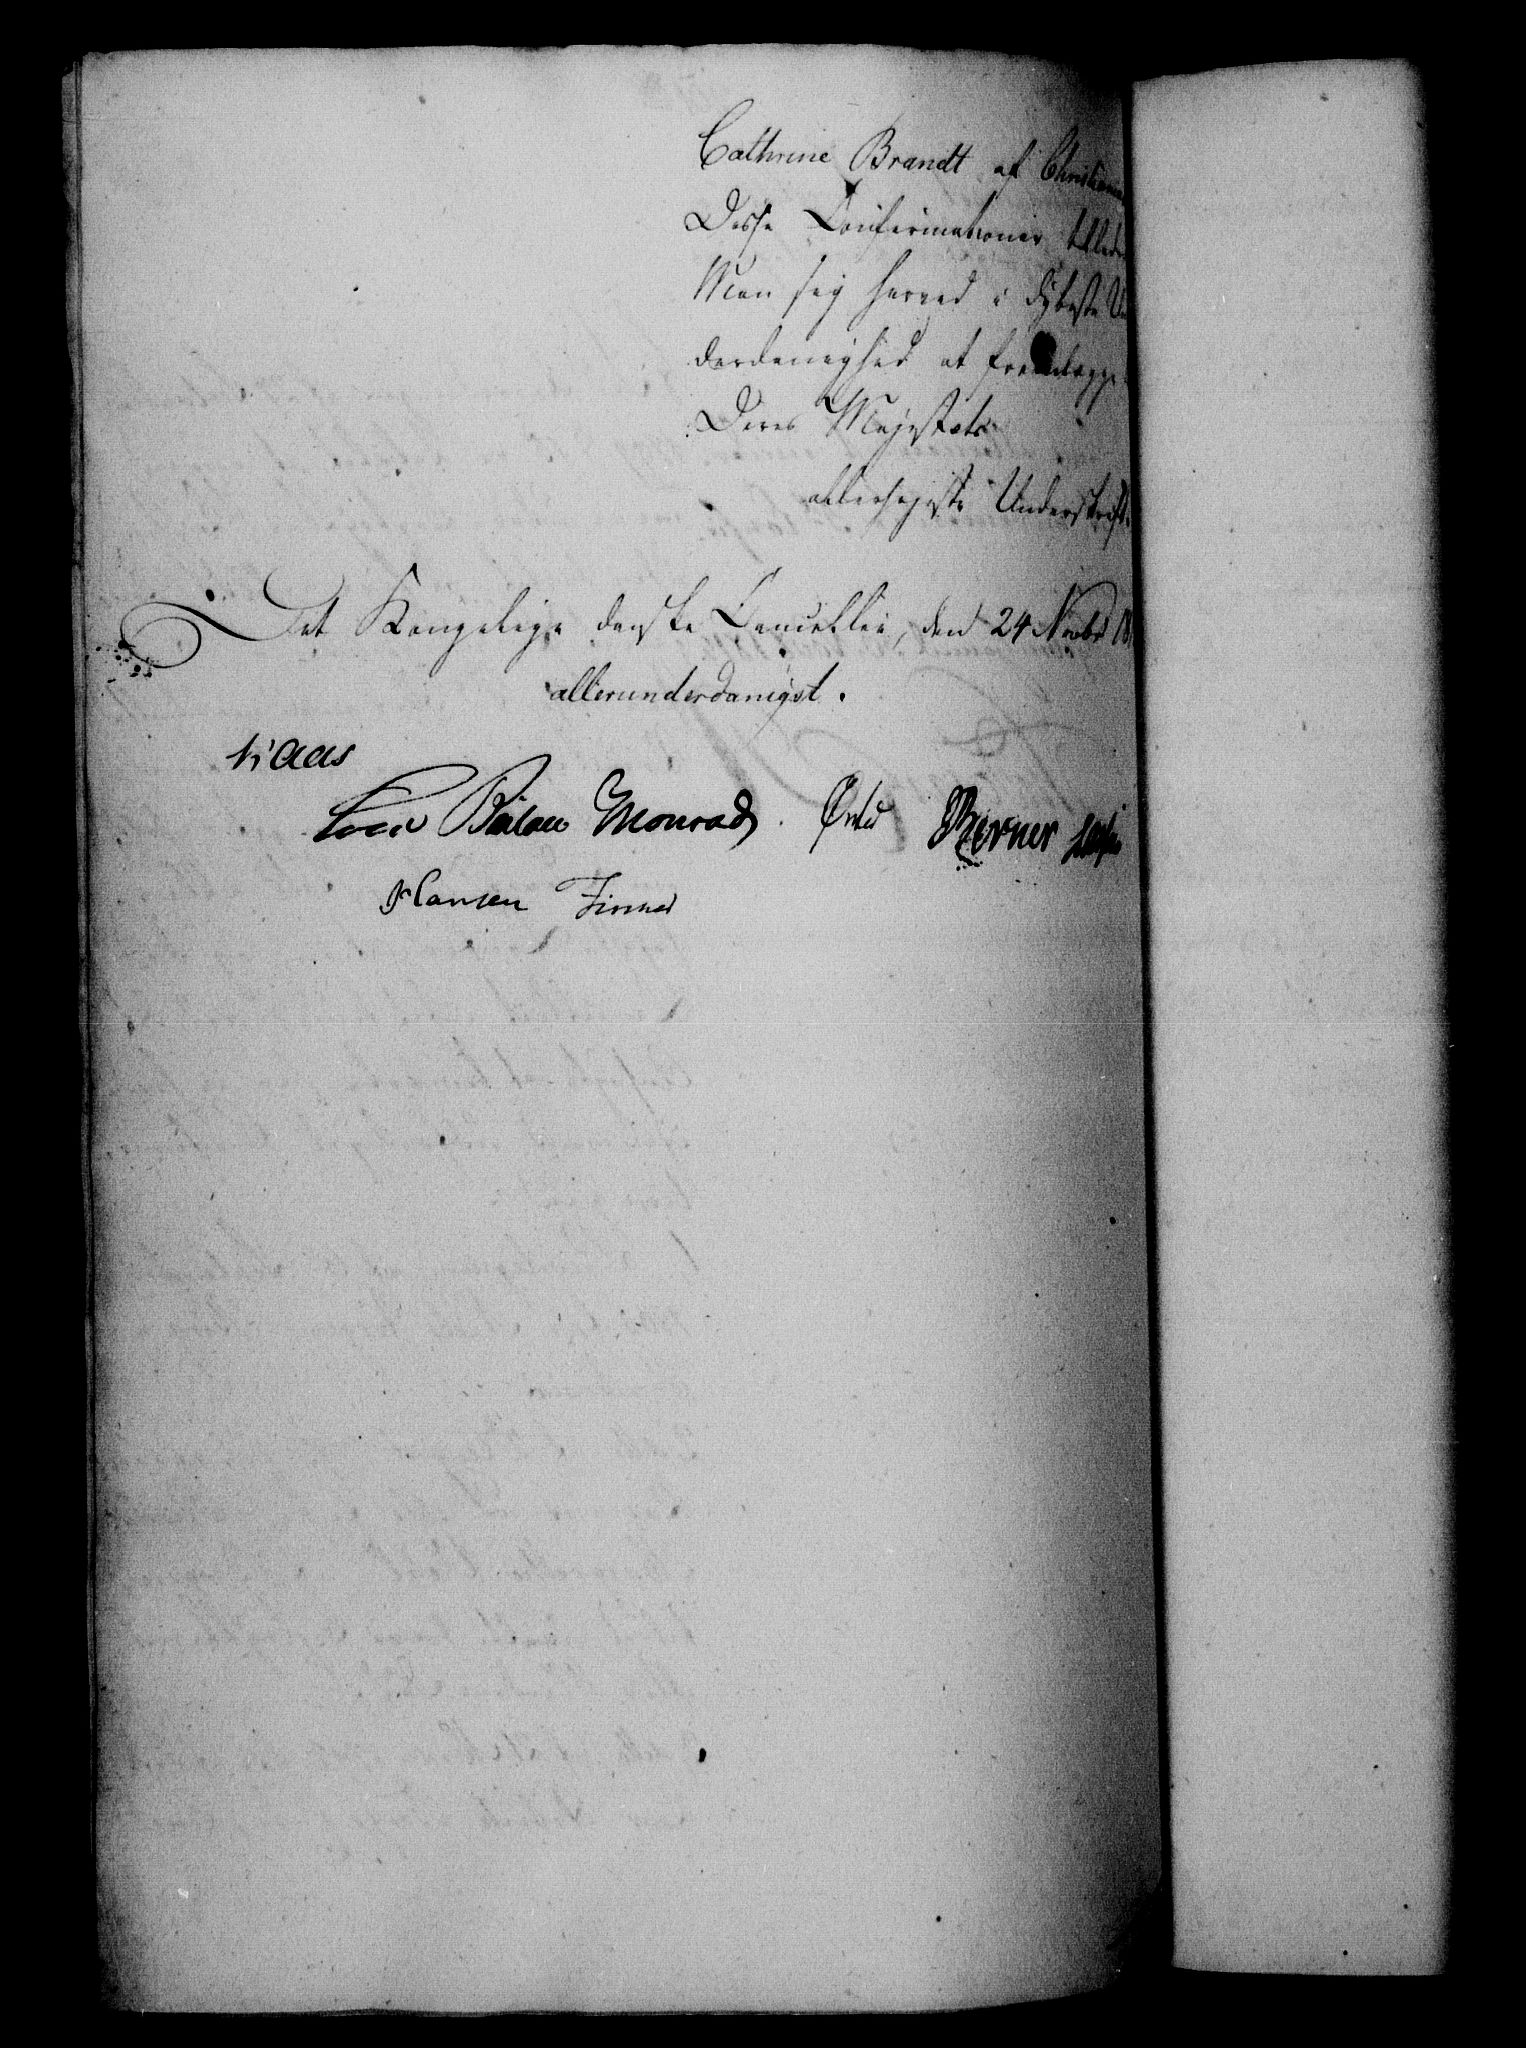 Cathrine Brandt af Christiania
Disse Confirmationer tillader
Man sig herved i dybeste Un
derdanighed at fremlægge
Deres Majestæts
allerhøjeste Underskrift.
Det Kongelige danske Cancellie, den 24 Novbr 18
allerunderdanigst.
Kaas
Cold Bülow Monrad. Ørsted Berner Lassen
Hansen